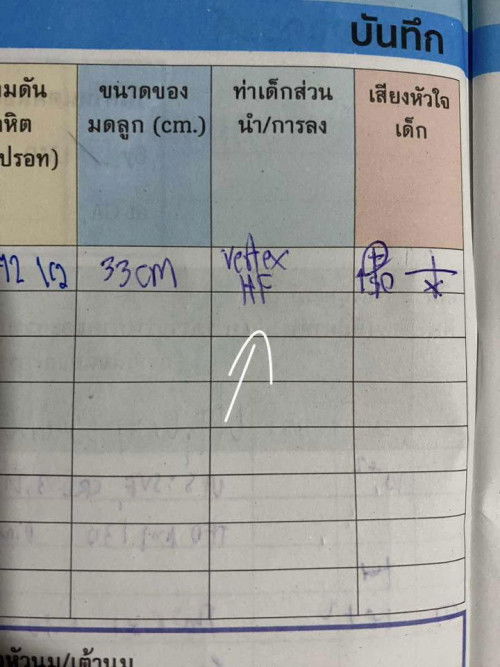 บันทึก
มดัน
หิต
ปรอท)
ขนาดของ
มดลูก (cm.)
ท่าเด็กส่วน
นำ/การลง
เสียงหัวใจ
เด็ก
33 cm
vertex
HF
+
150
หัวนม/เต้านม